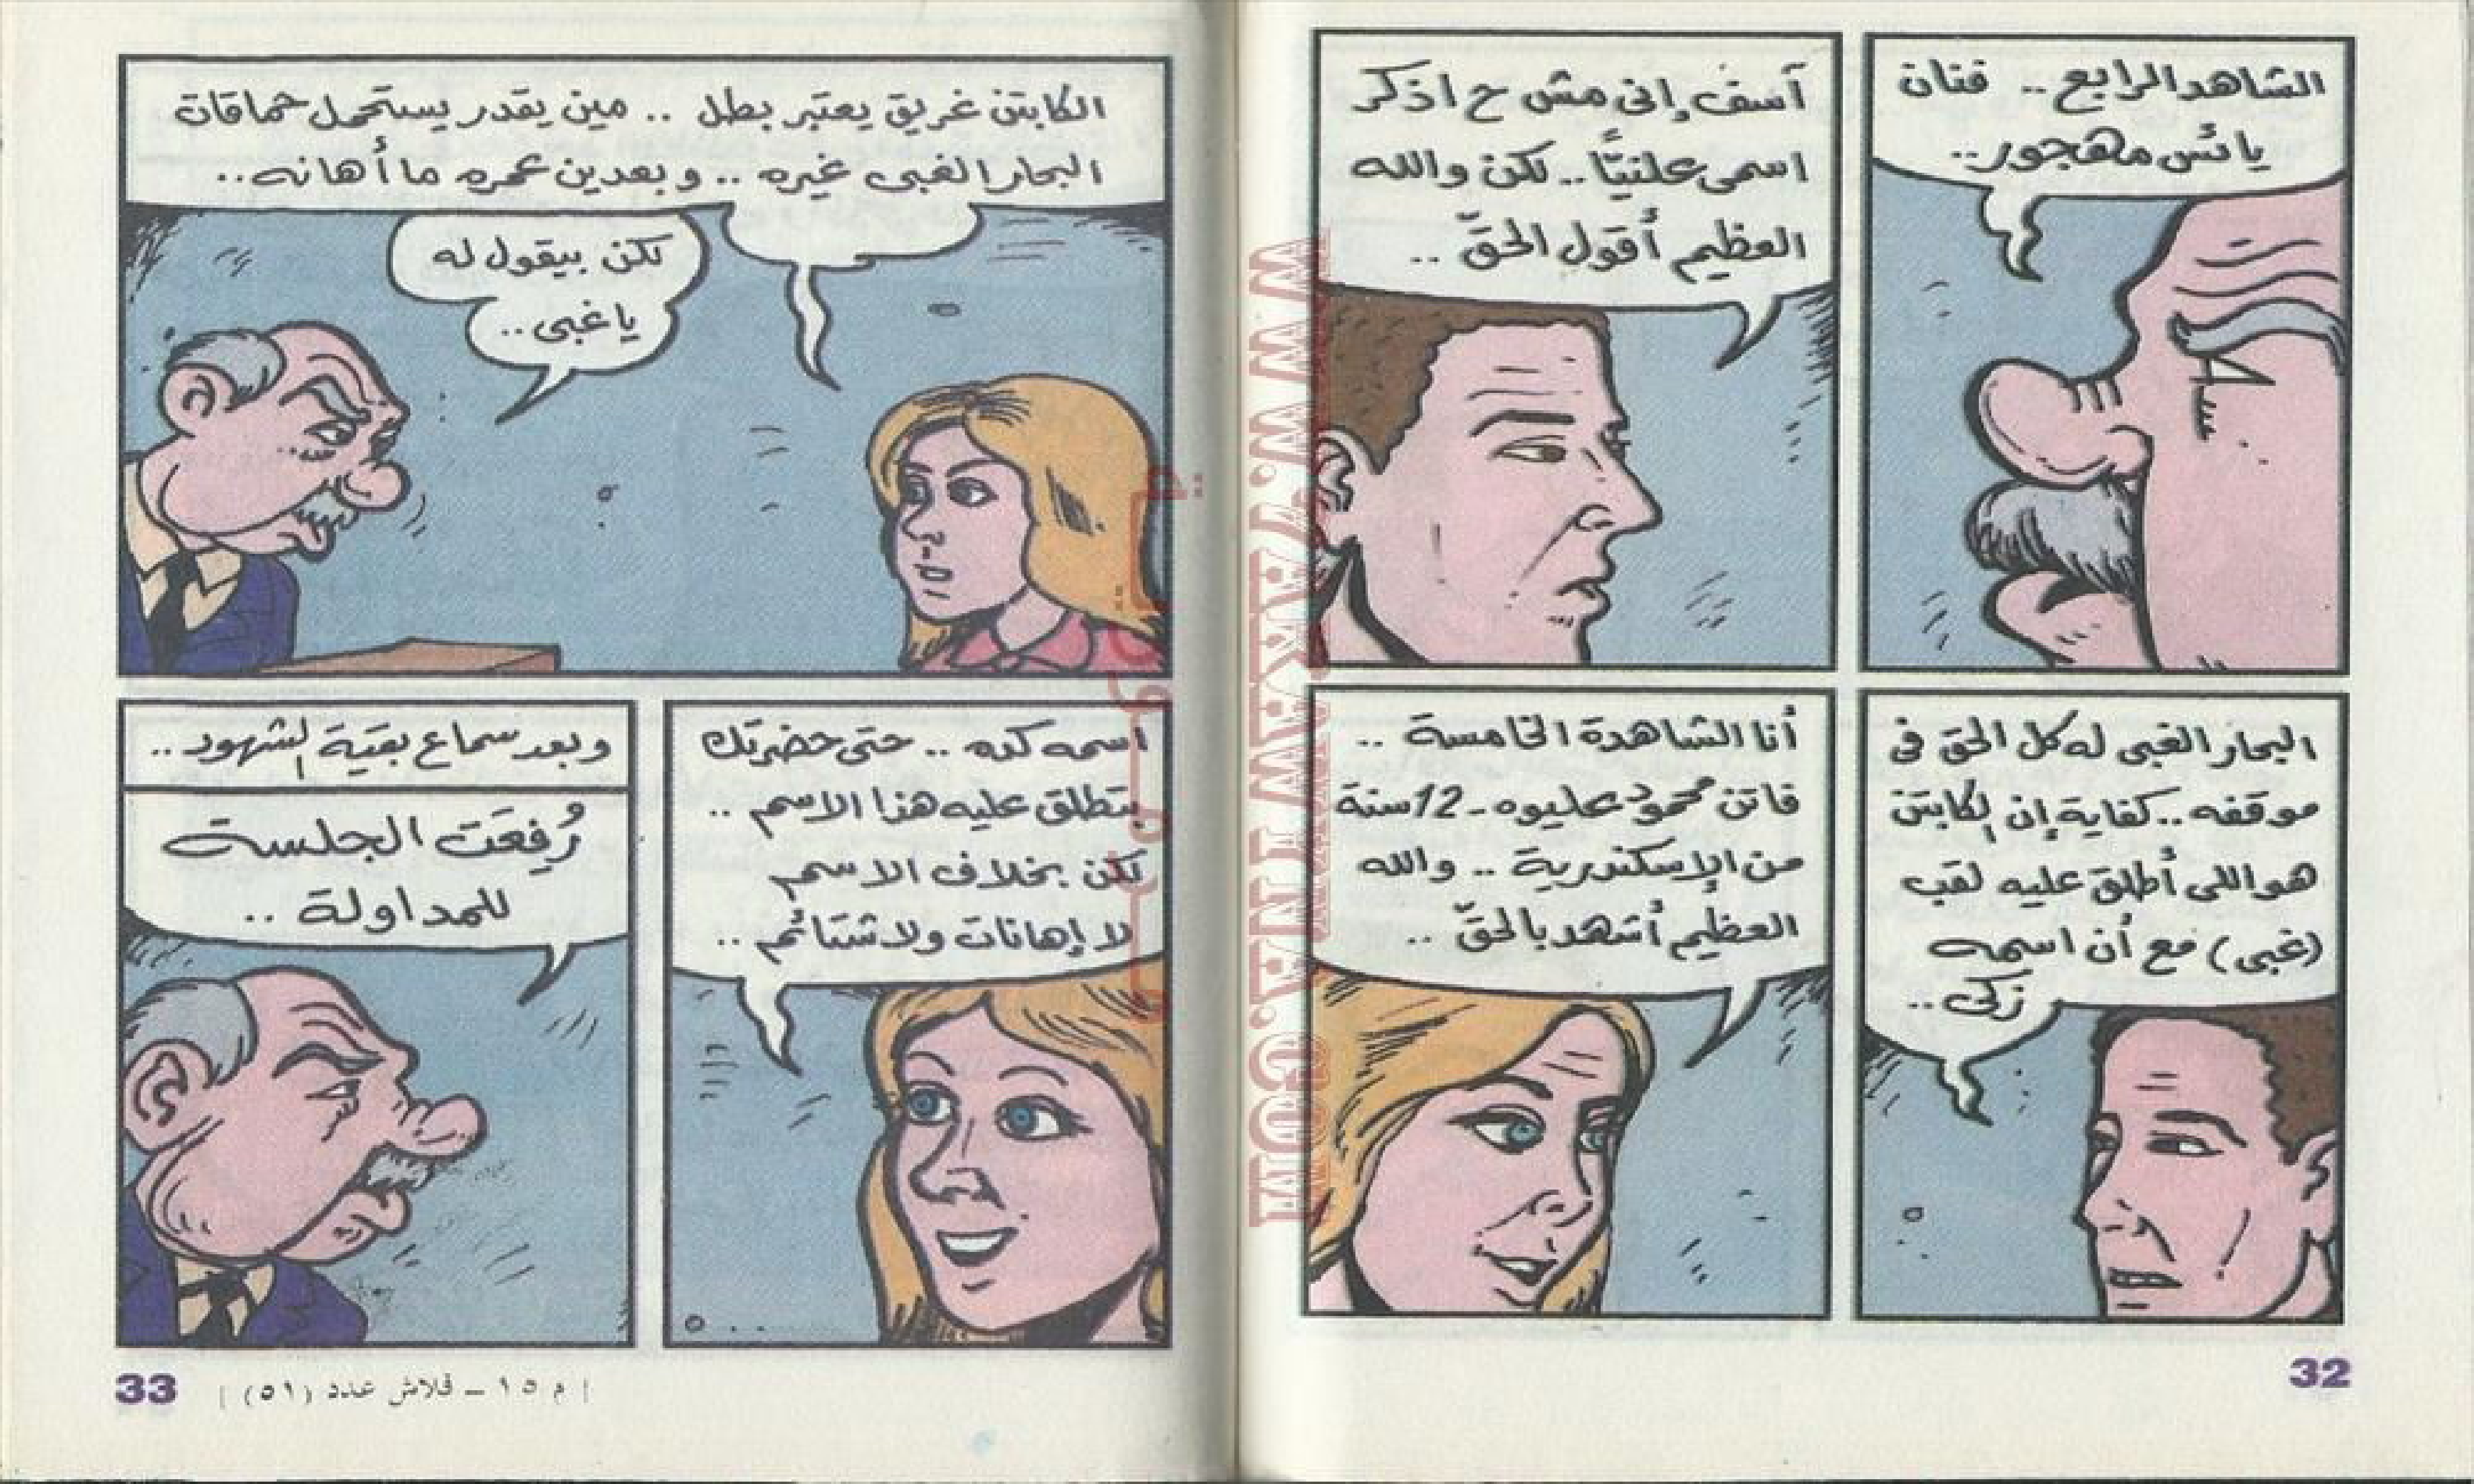 الشاهد الرابع.. فنان
يائس مهجور..
آسف إنى مش ح اذكر
اسمى علنيًّا.. لكن والله
العظيم أقول الحقّ..
البحار الغبى له كل الحق فى
موقفه.. كفاية إن الكابتن
هو اللى أطلق عليه لقب
(غبى) مع أن اسمه
زكى..
أنا الشاهدة الخامسة..
فاتن محمود عليوه - 12 سنة
من الإسكندرية.. والله
العظيم أشهد بالحقّ..
32
الكابتن غريق يعتبر بطل.. مين يقدر يستحمل حماقات
البحار الغبى غيره.. وبعدين عمره ما أهانه..
لكن بيقول له
يا غبى..
اسمه كده.. حتى حضرتك
بتطلق عليه هذا الاسم..
لكن بخلاف الاسم
لا إهانات ولا شتائم..
وبعد سماع بقية الشهود..
رُفِعَت الجلسة
للمداولة..
| م ١٥ - فلاش عدد (٥١) |
33